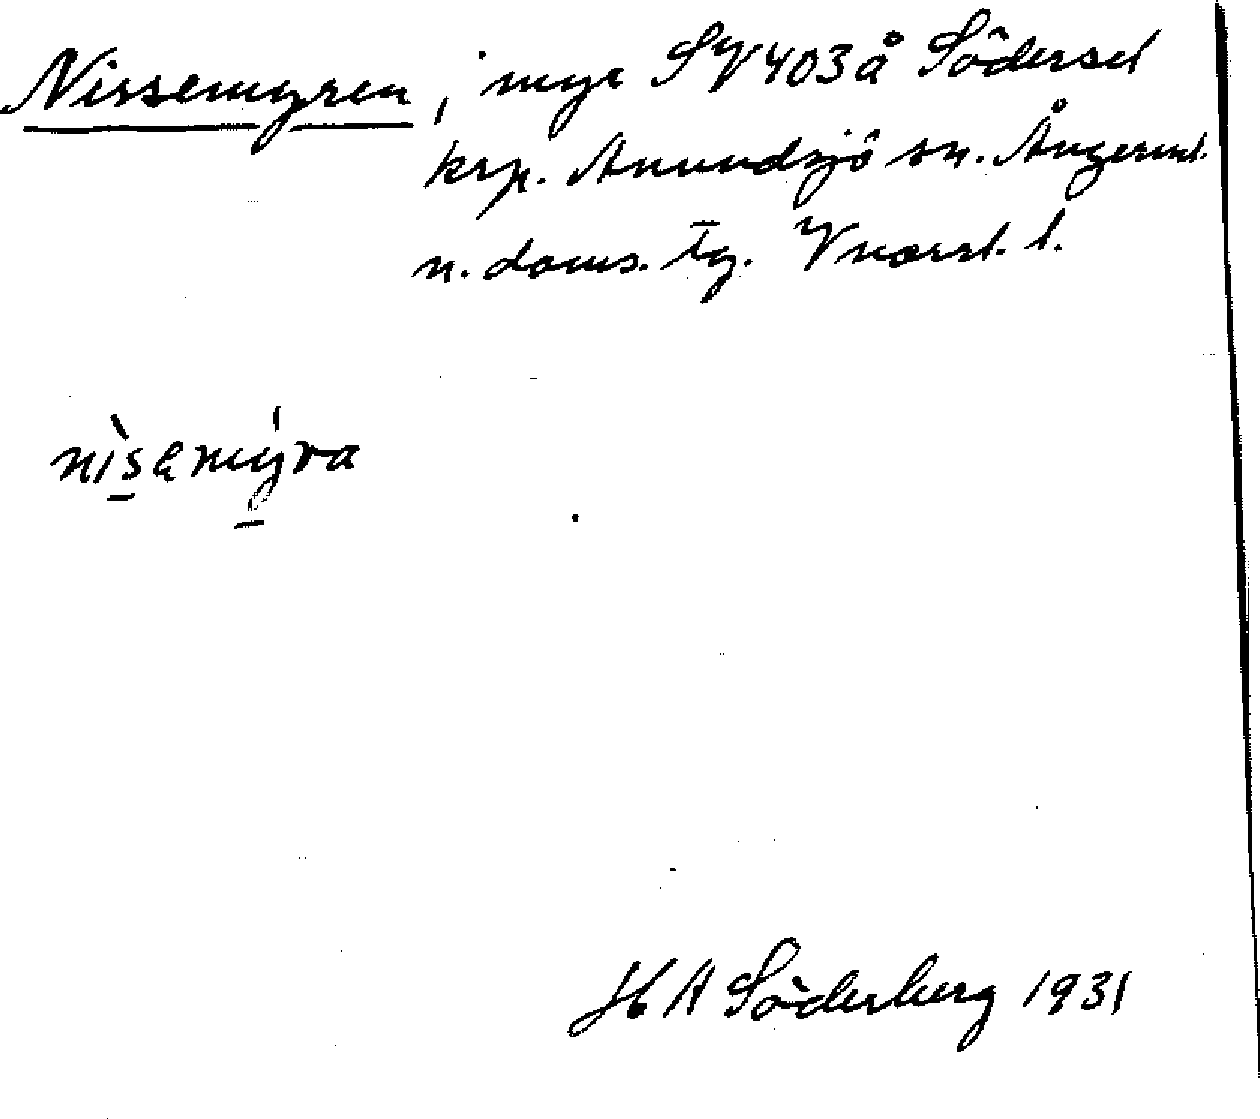 Nissemyren, myr SV 403 å Södersel
krp. Anundsjö sn. Ångerml.
n. doms. tg. Vnorrl. l.
nìsemy̍ra
H A Söderberg 1931